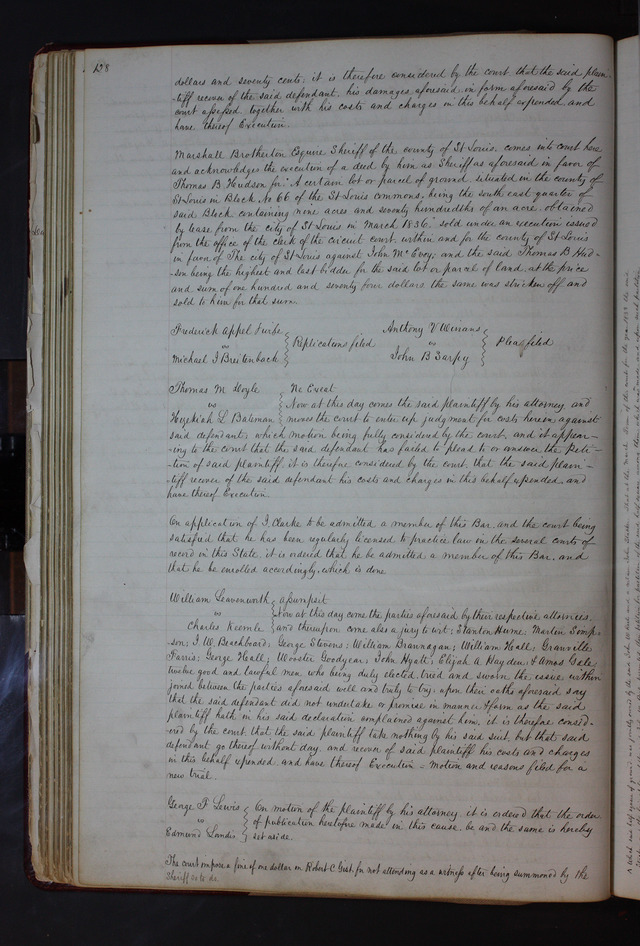 128
dollars and seventy cents; it is therefore considered by the court, that the said plain
-tiff recover of the said defendant, his damages aforesaid, in form aforesaid by the
court assessed, together with his costs and charges in this behalf expended, and
have thereof Execution.
Marshall Brotherton Esquire Sheriff of the county of St Louis, comes into court here
and acknowledges the execution of a deed by him as Sheriff as aforesaid in favor of
Thomas B Hudson for "A certain lot or parcel of ground, situated in the county of
St Louis in Block No 66 of the St Louis commons, being the south east quarter of
said Block containing nine acres and seventy hundredths of an acre, obtained
by lease from the city of St Louis in March 1836," sold under an execution issued
from the office of the clerk of the circuit court, within and for the county of St Louis
in favor of The city of St Louis against John McEvoy, and the said Thomas B Hud-
-son being the highest and last bidder for the said lot or parcel of land, at the price
and sum of one hundred and seventy four dollars, the same was stricken off and
sold to him for that sum.
Frederick Appel Surbe
vs
Michael J Breitenback
Replications filed
Anthony V Winans
vs
John B Sarpy
Pleas filed
Thomas M Doyle
vs
Hezekiah L Bateman
Ne Exeat
Now at this day comes the said plaintiff by his attorney, and
moves the court to enter up judgment for costs herein against
said defendant, which motion being fully considered by the court, and it appear-
-ing to the court that the said defendant has failed to plead to or answer the Peti-
-tion of said plaintiff, it is therefore considered by the court, that the said plain-
-tiff recover of the said defendant his costs and charges in this behalf expended, and
have thereof Execution.
On application of J. Clarke to be admitted a member of this Bar, and the court being
satisfied that he has been regularly licensed to practice law in the several courts of
record in this State, it is ordered that he be admitted a member of this Bar, and
that he be enrolled accordingly, which is done
William Leavenworth
vs
Charles Keemle
Assumpsit
Now at this day come the parties aforesaid by their respective attornies,
and thereupon come also a jury to wit: Stanton Hume; Martin Somp-
son; J. W. Beachboard; George Stevens; William Brannagan; William Hall; Granville
Farris; George Hall; Wooster Goodyear; John Hyatt; Elijah A Hayden; & Amos Gale
twelve good and lawful men who being duly elected, tried and sworn the issue within
joined between the parties aforesaid well and truly to try; upon their oaths aforesaid say
that the said defendant did not undertake or promise in manner & form as the said
plaintiff hath in his said declaration complained against him, it is therefore consid-
ered by the court that the said plaintiff take nothing by his said suit, but that said
defendant go thereof without day, and recover of said plaintiff his costs and charges
in this behalf expended, and have thereof Execution = Motion and reasons filed for a
new trial.
George F Lewis
vs
Edmund Landis
On motion of the plaintiff by his attorney, it is ordered that the order
of publication heretofore made in this cause, be and the same is hereby
set aside.
The court impose a fine of one dollar on Robert C Gist, for not attending as a witness after being summoned by the
Sheriff so to do.